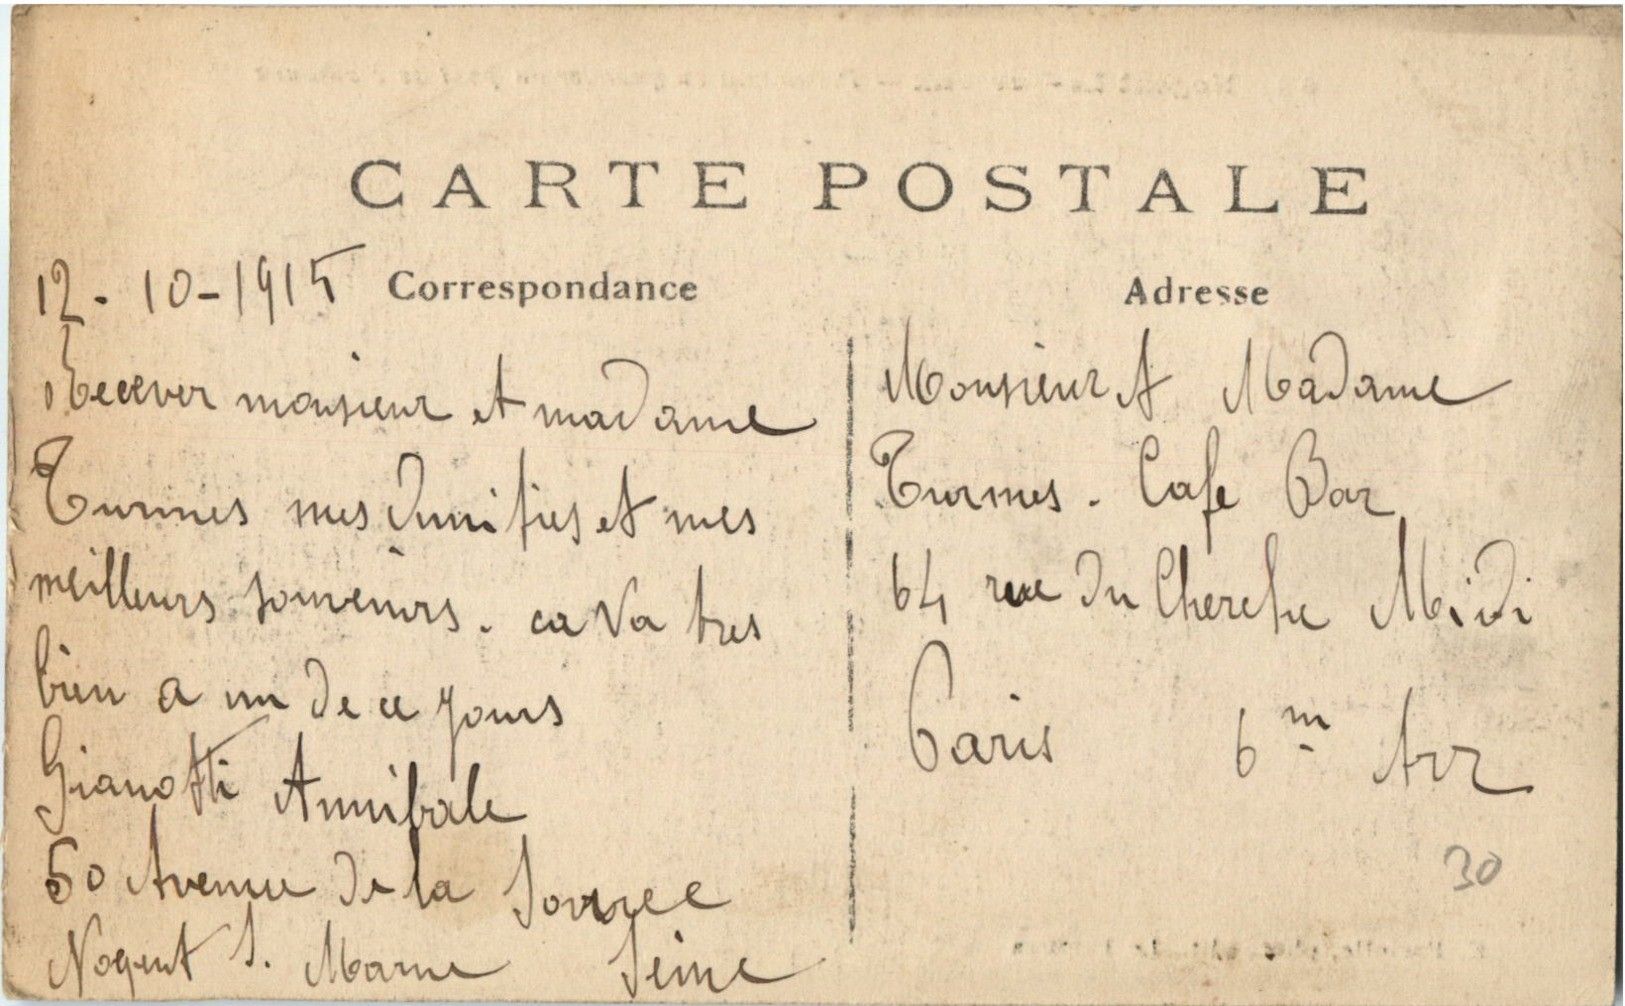 CARTE POSTALE
Correspondance
Adresse
12-10-1915
Recever monsieur et madame
Turmes mes Amities et mes
meilleurs souvenirs. ca va tres
bien a un de ce jours
Gianotti Annibale
50 Avenue de la Source
Nogent S. Marne Seine
Monsieur et Madame
Turmes. Cafe Bar
64 rue du Cherche Midi
Paris 6m Arr
30